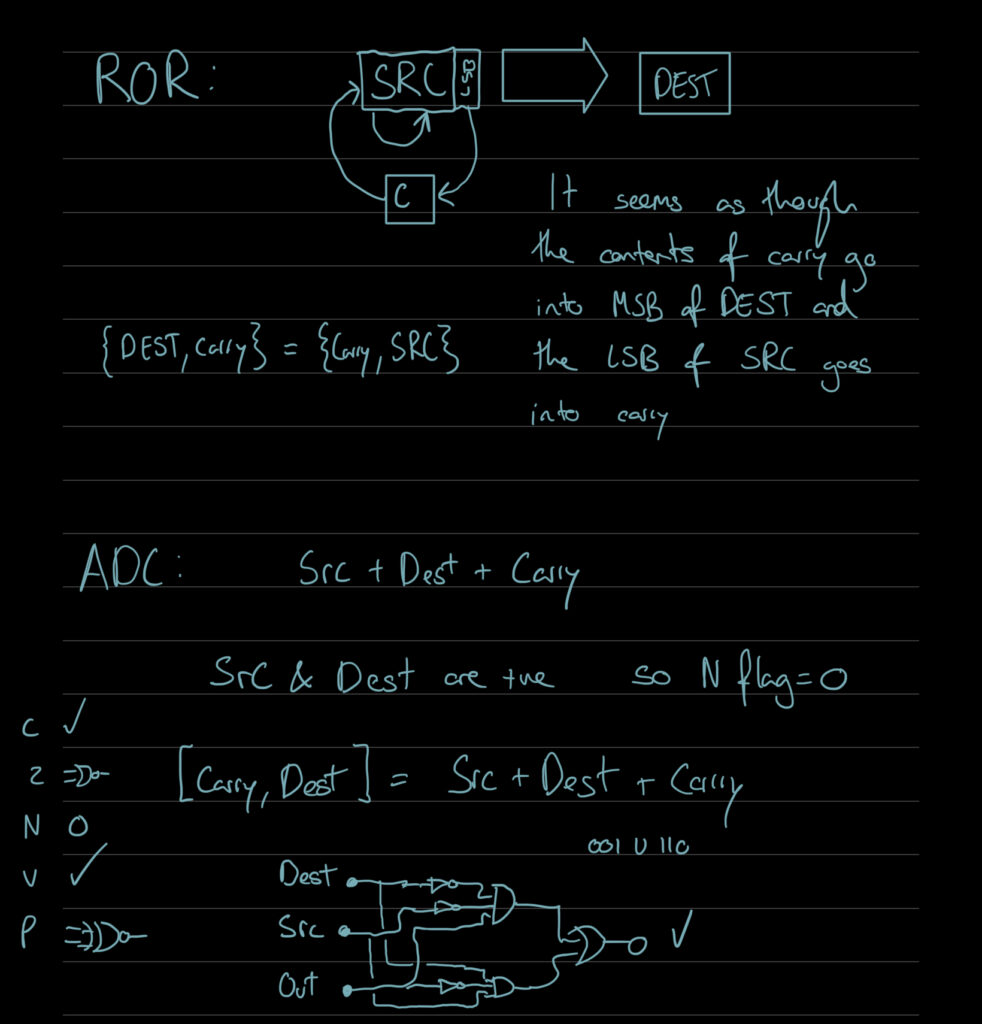 ROR:
SRC LSB DEST
C
It seems as though
the contents of carry go
into MSB of DEST and
{DEST, Carry} = {Carry, SRC}
the LSB of SRC goes
into carry
ADC: Src + Dest + Carry
Src & Dest are +ve so N flag=0
C ✓
Z [Carry, Dest] = Src + Dest + Carry
N 0
001 U 110
V ✓
Dest
P
Src ✓
Out